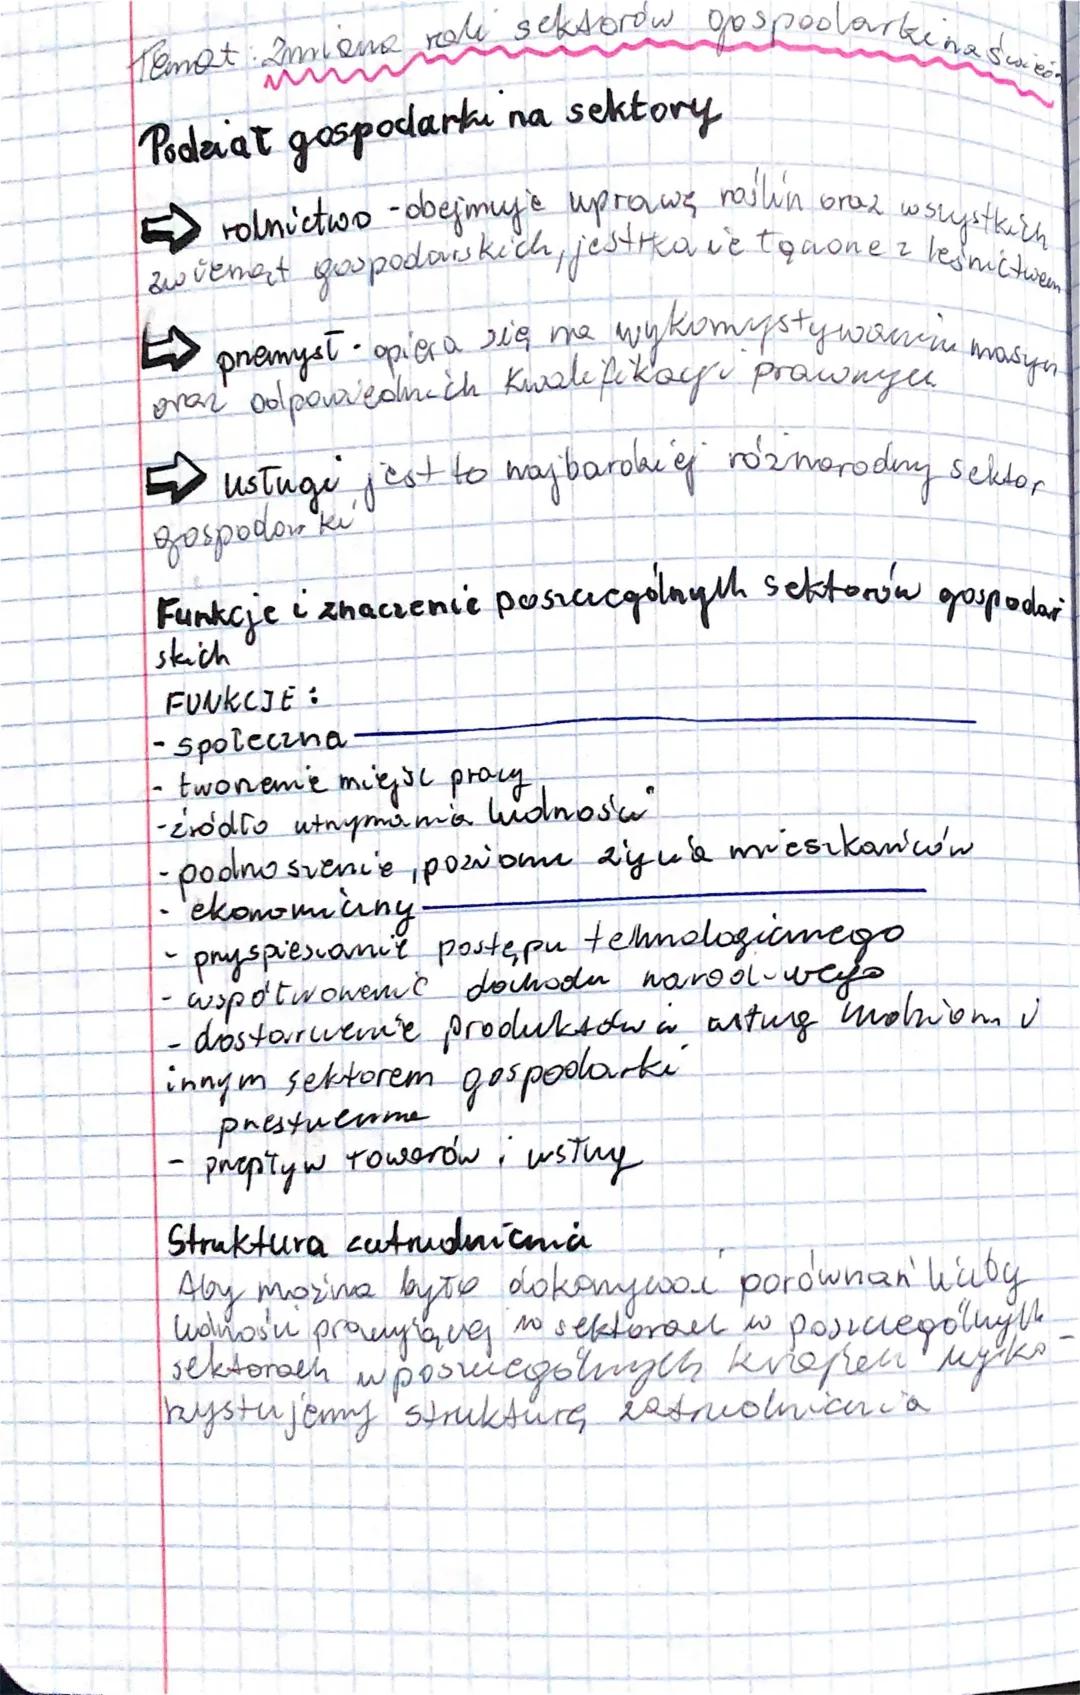 Temat: Zmiana roli sektorów gospodarki na świecie
Podział gospodarki na sektory
rolnictwo - obejmuje uprawę roślin oraz wszystkich
zwierząt gospodarskich, jest łączone z leśnictwem
przemysł - opiera się na wykorzystywaniu maszyn
oraz odpowiednich kwalifikacji
usługi jest to najbardziej różnorodny sektor
gospodarki
Funkcje i znaczenie poszczególnych sektorów gospodar
skich
FUNKCJE:
- społeczna
- tworzenie miejsc pracy
- źródło utrzymania ludności
- podnoszenie poziomu życia mieszkańców
- ekonomiczny
- przyspieszanie postępu technologicznego
- współtworzenie dochodu narodowego
- dostarczenie produktów i usług i
innym sektorem gospodarki
przestrzenna
- przepływ towarów i usług
Struktura zatrudnienia
Aby można było dokonywać porównań liczby
ludności pracującej w sektorach w poszczególnych
sektorach w poszczególnych krajach wyko-
rzystujemy strukturę zatrudnienia